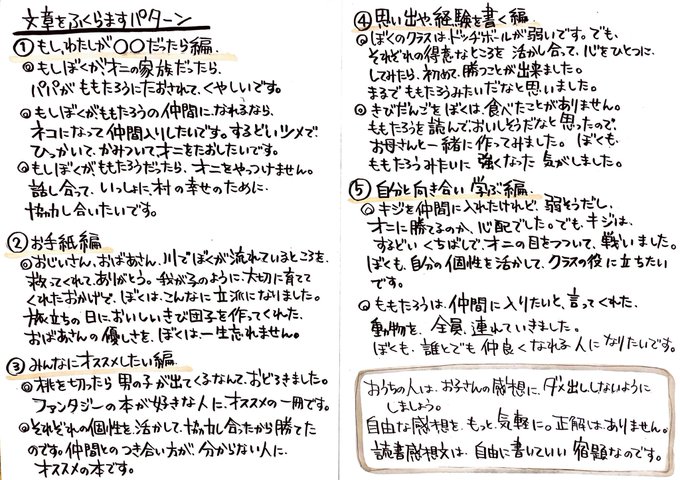 文章をふくらますパターン
①もし、わたしが〇〇だったら編.
◎もしぼくがオニの家族だったら、
パパがももたろうにたおされて、くやしいです。
◎もしぼくがももたろうの仲間に、なれるなら、
ネコになって仲間入りしたいです。するどいツメで
ひっかいて、かみついてオニをたおしたいです。
◎もしぼくがももたろうだったら、オニをやっつけません。
話し合って、いっしょに、村の幸せのために、
協力し合いたいです。
②お手紙編
◎おじいさん、おばあさん、川でぼくが流れているところを、
救ってくれて、ありがとう。我が子のように、大切に育てて
くれたおかげで、ぼくは、こんなに立派になりました。
旅立ちの日に、おいしいきび団子を作ってくれた、
おばあさんの優しさを、ぼくは、一生忘れません。
③みんなにオススメしたい編
◎桃を切ったら男の子が出てくるなんて、おどろきました。
ファンタジーの本が好きな人に、オススメの一冊です。
◎それぞれの個性を、活かして、協力し合ったから勝てた
のです。仲間とのつき合い方が、分からない人に、
オススメの本です。
④思い出や、経験を書く編.
◎ぼくのクラスは、ドッヂボールが弱いです。でも、
それぞれの得意なところを活かし合って、心をひとつに、
してみたら、初めて、勝つことが出来ました。
まるでももたろうみたいだなと思いました。
◎きびだんごをぼくは、食べたことがありません。
ももたろうを読んで、おいしそうだなと思ったので、
お母さんと一緒に作ってみました。ぼくも、
ももたろうみたいに強くなった気がしました。
⑤自分と向き合い学ぶ編.
◎キジを仲間に入れたけれど、弱そうだし、
オニに勝てるのか、心配でした。でも、キジは、
するどいくちばしで、オニの目をつついて、戦いました。
ぼくも、自分の個性を活かして、クラスの役に立ちたい
です。
◎ももたろうは、仲間に入りたいと、言ってくれた、
動物を、全員、連れていきました。
ぼくも、誰とでも仲良くなれる人になりたいです。
おうちの人は、お子さんの感想に、ダメ出ししないように
しましょう。
自由な感想を、もっと、気軽に。正解は、ありません。
読書感想文は、自由に書いていい宿題なのです。